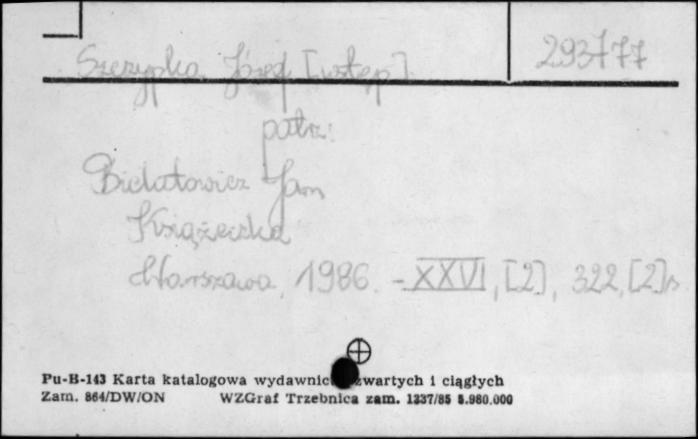 Szczypka Józef [wstęp] 293777
patrz:
Bielatowicz Jan
Książeczka
Warszawa, 1986. - XXVI, [2], 322, [2] s.
Pu-B-143 Karta katalogowa wydawnic zwartych i ciągłych
Zam. 864/DW/ON WZGraf Trzebnica zam. 1337/85 5.980.000